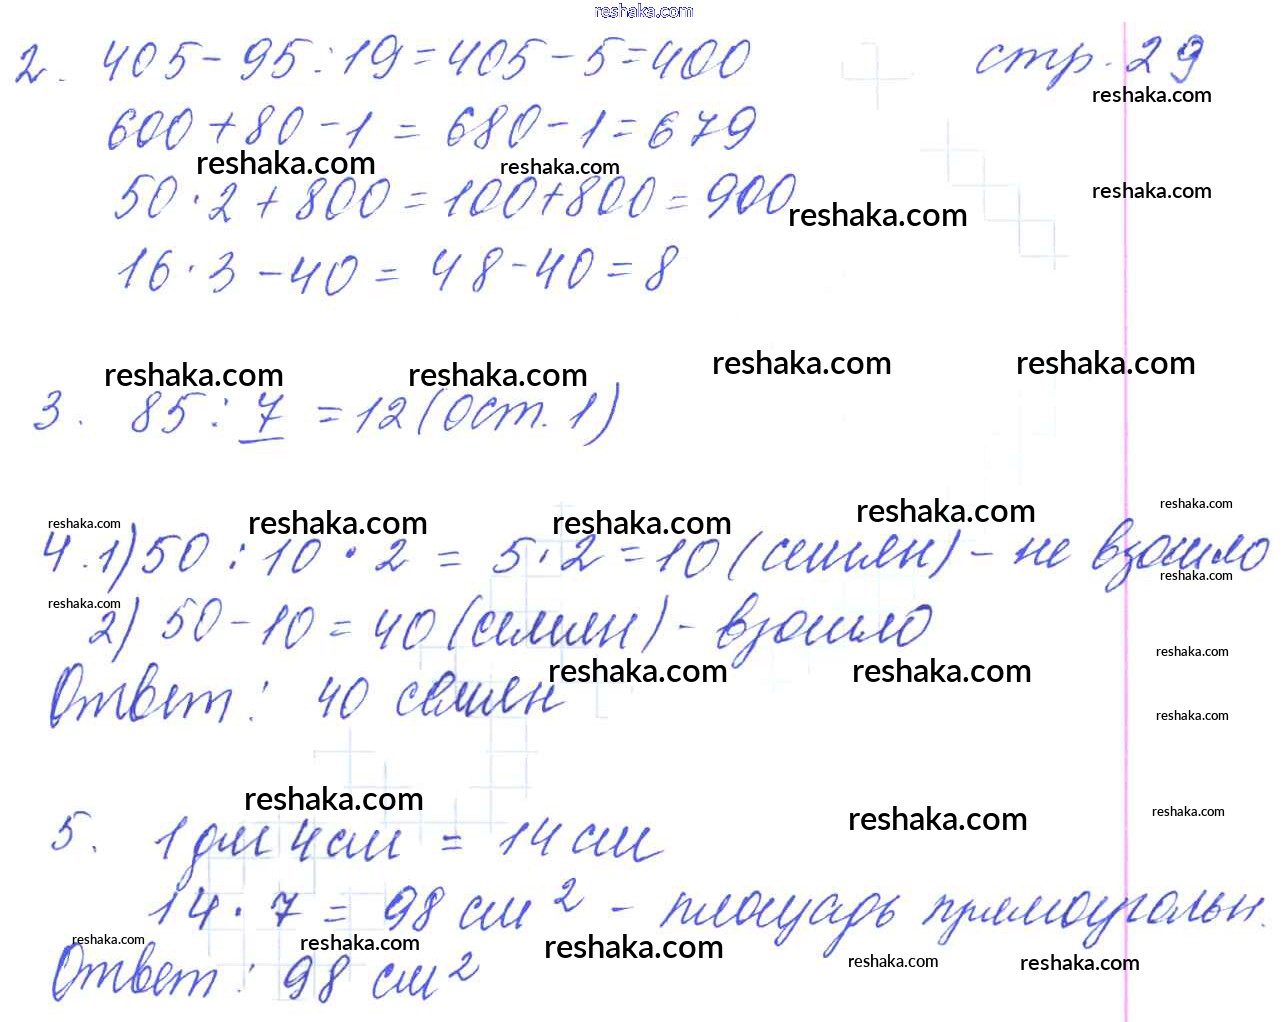 reshaka.com
2. 405 - 95 : 19 = 405 - 5 = 400 стр. 29
reshaka.com
600 + 80 - 1 = 680 - 1 = 679
reshaka.com reshaka.com
reshaka.com
50 · 2 + 800 = 100 + 800 = 900
reshaka.com
16 · 3 - 40 = 48 - 40 = 8
reshaka.com reshaka.com reshaka.com reshaka.com
3. 85 : 7 = 12 (ост. 1)
reshaka.com reshaka.com reshaka.com reshaka.com reshaka.com
4. 1) 50 : 10 · 2 = 5 · 2 = 10 (семян) - не взошло
reshaka.com
reshaka.com
2) 50 - 10 = 40 (семян) - взошло
reshaka.com reshaka.com reshaka.com
Ответ: 40 семян
reshaka.com
reshaka.com reshaka.com reshaka.com
5. 1 дм 4 см = 14 см
14 · 7 = 98 см² - площадь прямоугольн.
reshaka.com reshaka.com reshaka.com reshaka.com reshaka.com
Ответ: 98 см²